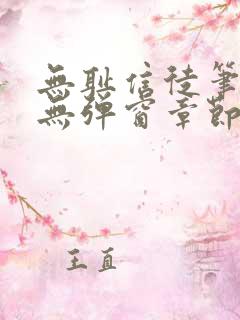 無耻信徒筆
無彈窗章節
王直